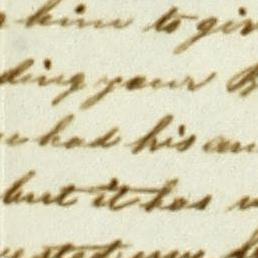 him to giv
ding your B
had his an
but it has